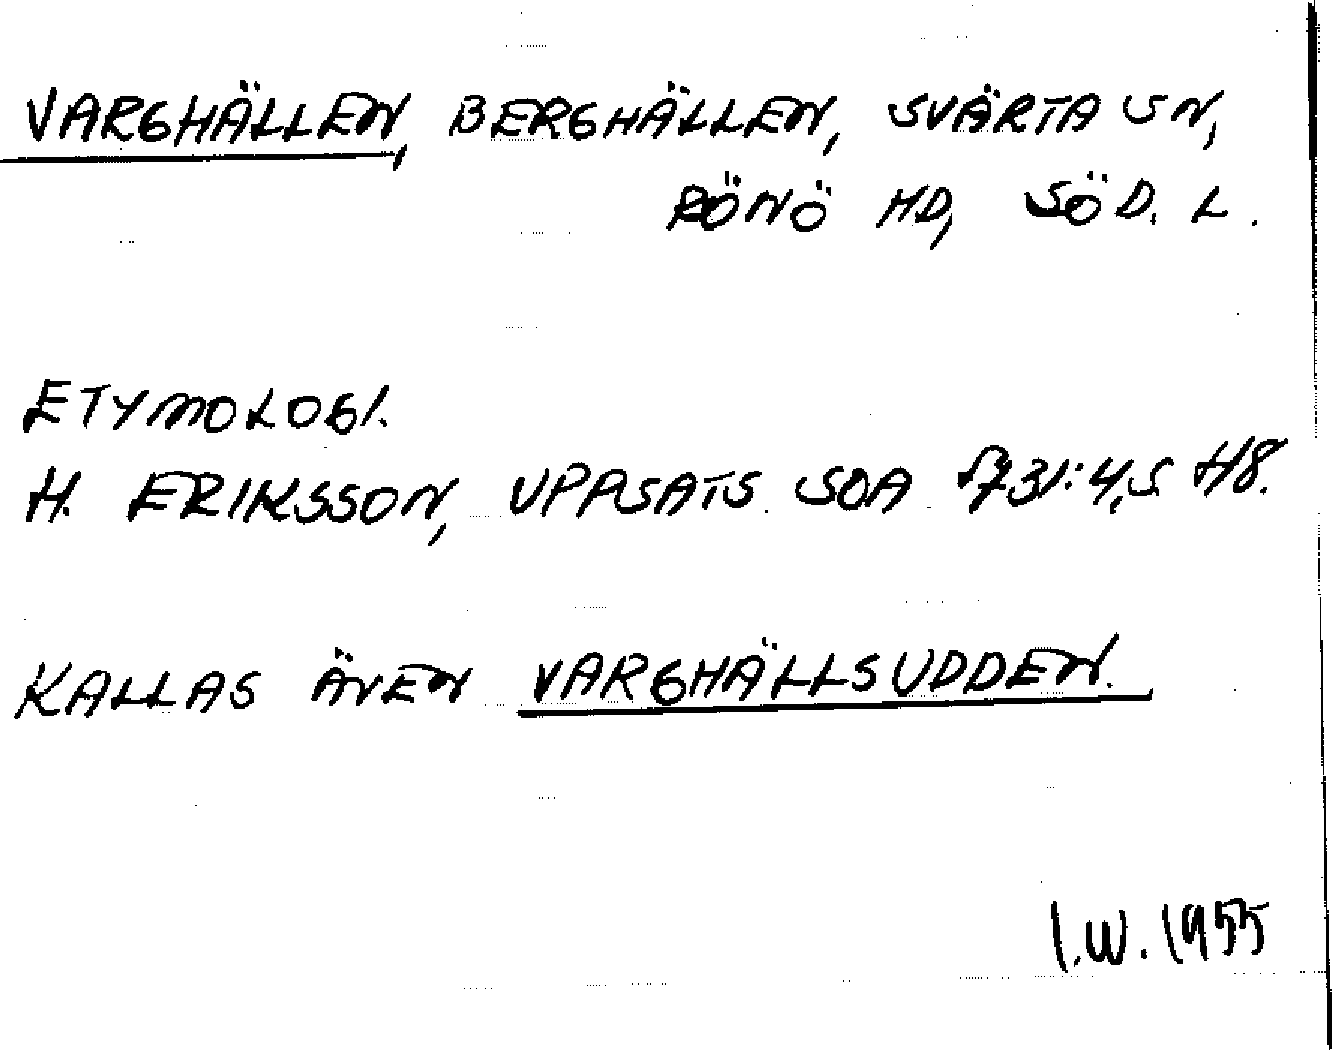 VARGHÄLLEN, BERGHÄLLEN, SVÄRTA SN,
RÖNÖ HD, SÖD. L.
ETYMOLOGI.
H. ERIKSSON, UPPSATS SOA 1731:4, S. 48.
KALLAS ÄVEN VARGHÄLLSUDDEN.
I.W. 1955